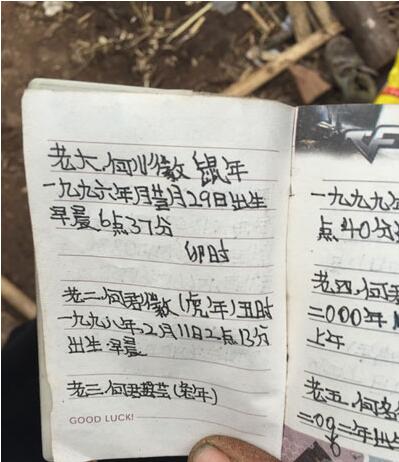 老大.何川徽 鼠年
一九九六年月普月29日出生
早晨6点37分
卯时
老二.何君徽(虎年)丑时
一九九八年.2月11日2点13分
出生.早晨
老三.何君(老年)
GOOD LUCK!
一九九九年
点40分
老四.何君
二000年
上午
老五.何
二年出生